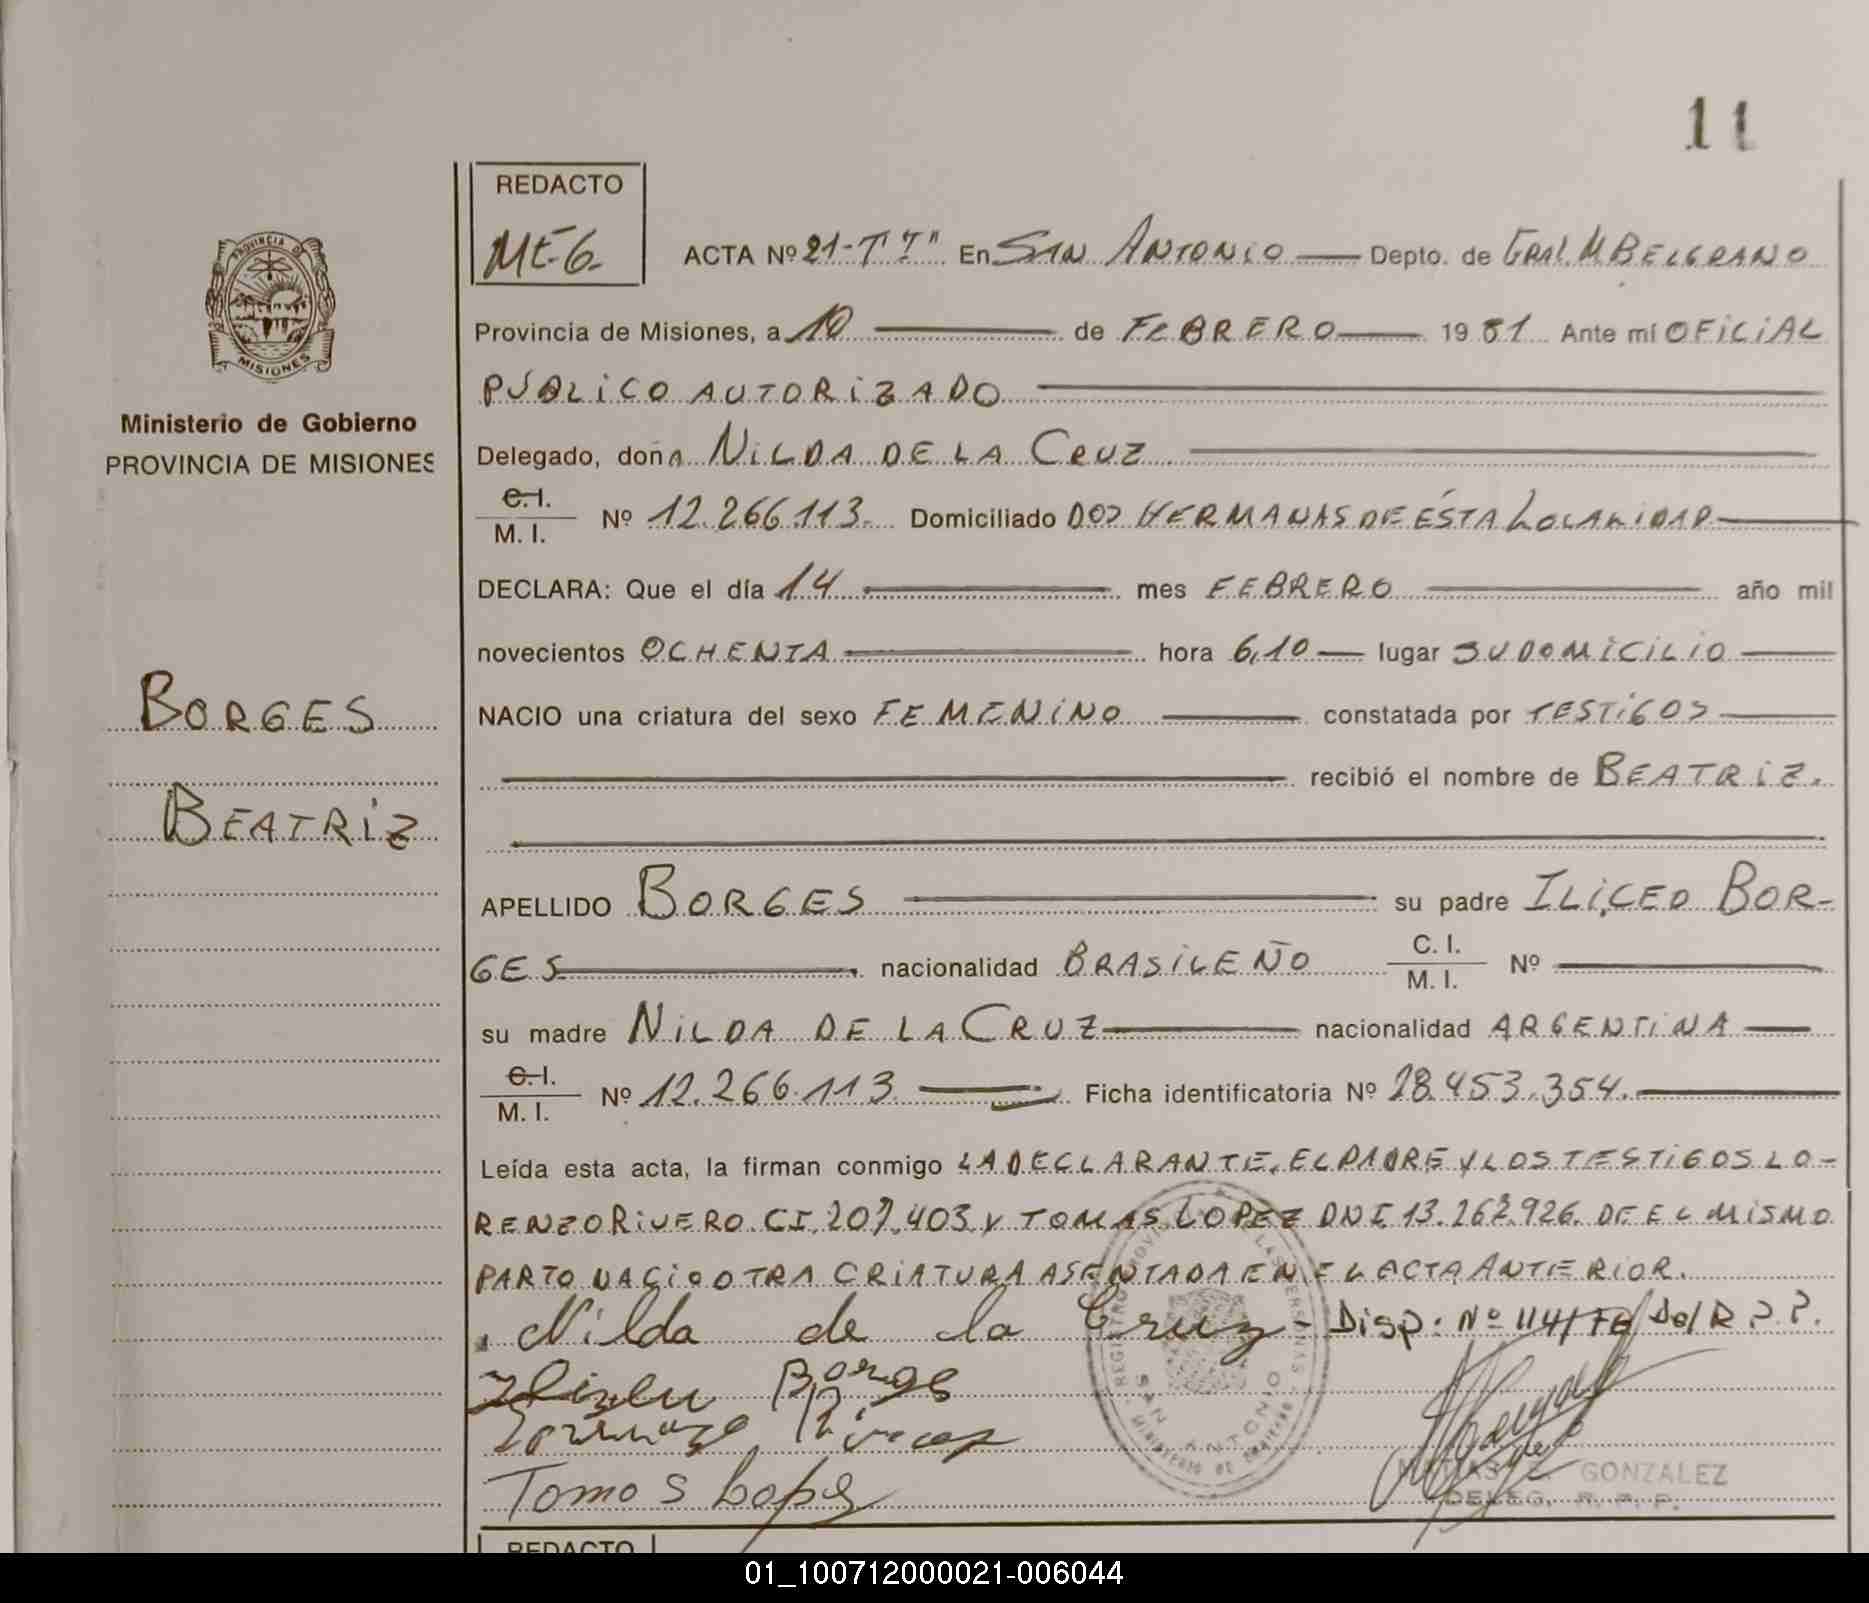 11
REDACTO
MEG.
PROVINCIA D
MISIONES
Ministerio de Gobierno
PROVINCIA DE MISIONES
BORGES
BEATRIZ
ACTA Nº 21-T"I" En SAN ANTONIO Depto. de GRAL M BELGRANO
Provincia de Misiones, a 10 de FEBRERO 1981 Ante mí OFICIAL
PÚBLICO AUTORIZADO
Delegado, doña NILDA DE LA CRUZ
C.I. M. I. Nº 12.266.113. Domiciliado DOS HERMANAS DE ÉSTA LOCALIDAD
DECLARA: Que el día 14 mes FEBRERO año mil
novecientos OCHENTA hora 6,10 lugar SU DOMICILIO
NACIO una criatura del sexo FEMENINO constatada por TESTIGOS
recibió el nombre de BEATRIZ.
APELLIDO BORGES su padre ILICEO BOR-
GES nacionalidad BRASILEÑO C. I. M. I. Nº
su madre NILDA DE LA CRUZ nacionalidad ARGENTINA
C.I. M. I. Nº 12.266.113 Ficha identificatoria Nº 28.453.354.
Leída esta acta, la firman conmigo LA DECLARANTE, EL PADRE Y LOS TESTIGOS LO-
RENZO RIVERO CI. 207.403 Y TOMAS LOPEZ DNI 13.267.926. DE EL MISMO
PARTO NACIO OTRA CRIATURA ASENTADA EN EL ACTA ANTERIOR.
Nilda de la Cruz - Disp: Nº 114/76 Del R.P.P.
Borges
Tomos Lopez
SAN ANTONIO
GONZALEZ
DELEG. R. P. P.
REDACTO
01_100712000021-006044